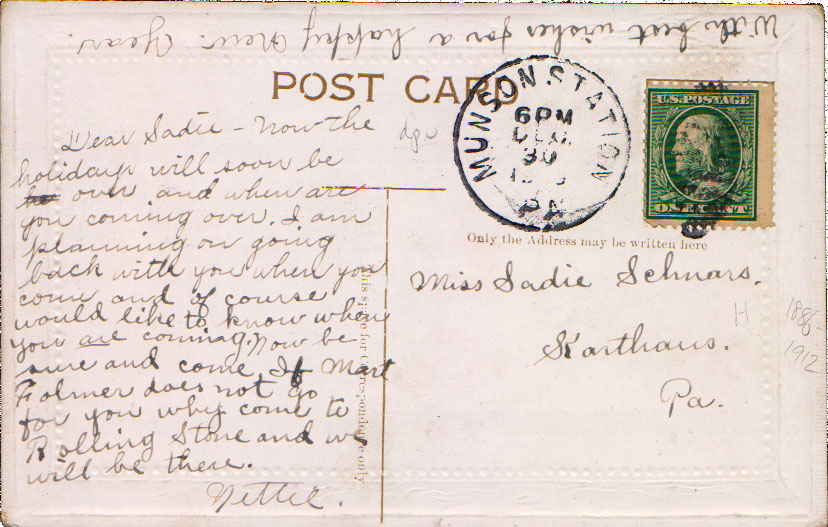 With best wishes for a happy New Year.
POST CARD
Dear Sadie - Now the
holidays will soon be
over and when are
you coming over. I am
planning on going
back with you when you
come and of course
would like to know when
you are coming. Now be
sure and come. If Mart
Folmer does not go
for you why come to
Rolling Stone and we
will be there.
Nettie.
This space for Correspondence only
MUNSON STATION
6PM
DEC
30
PA
U.S. POSTAGE
ONE CENT
Only the Address may be written here
Miss Sadie Schnars.
Karthaus.
Pa.
H
1886-
1912